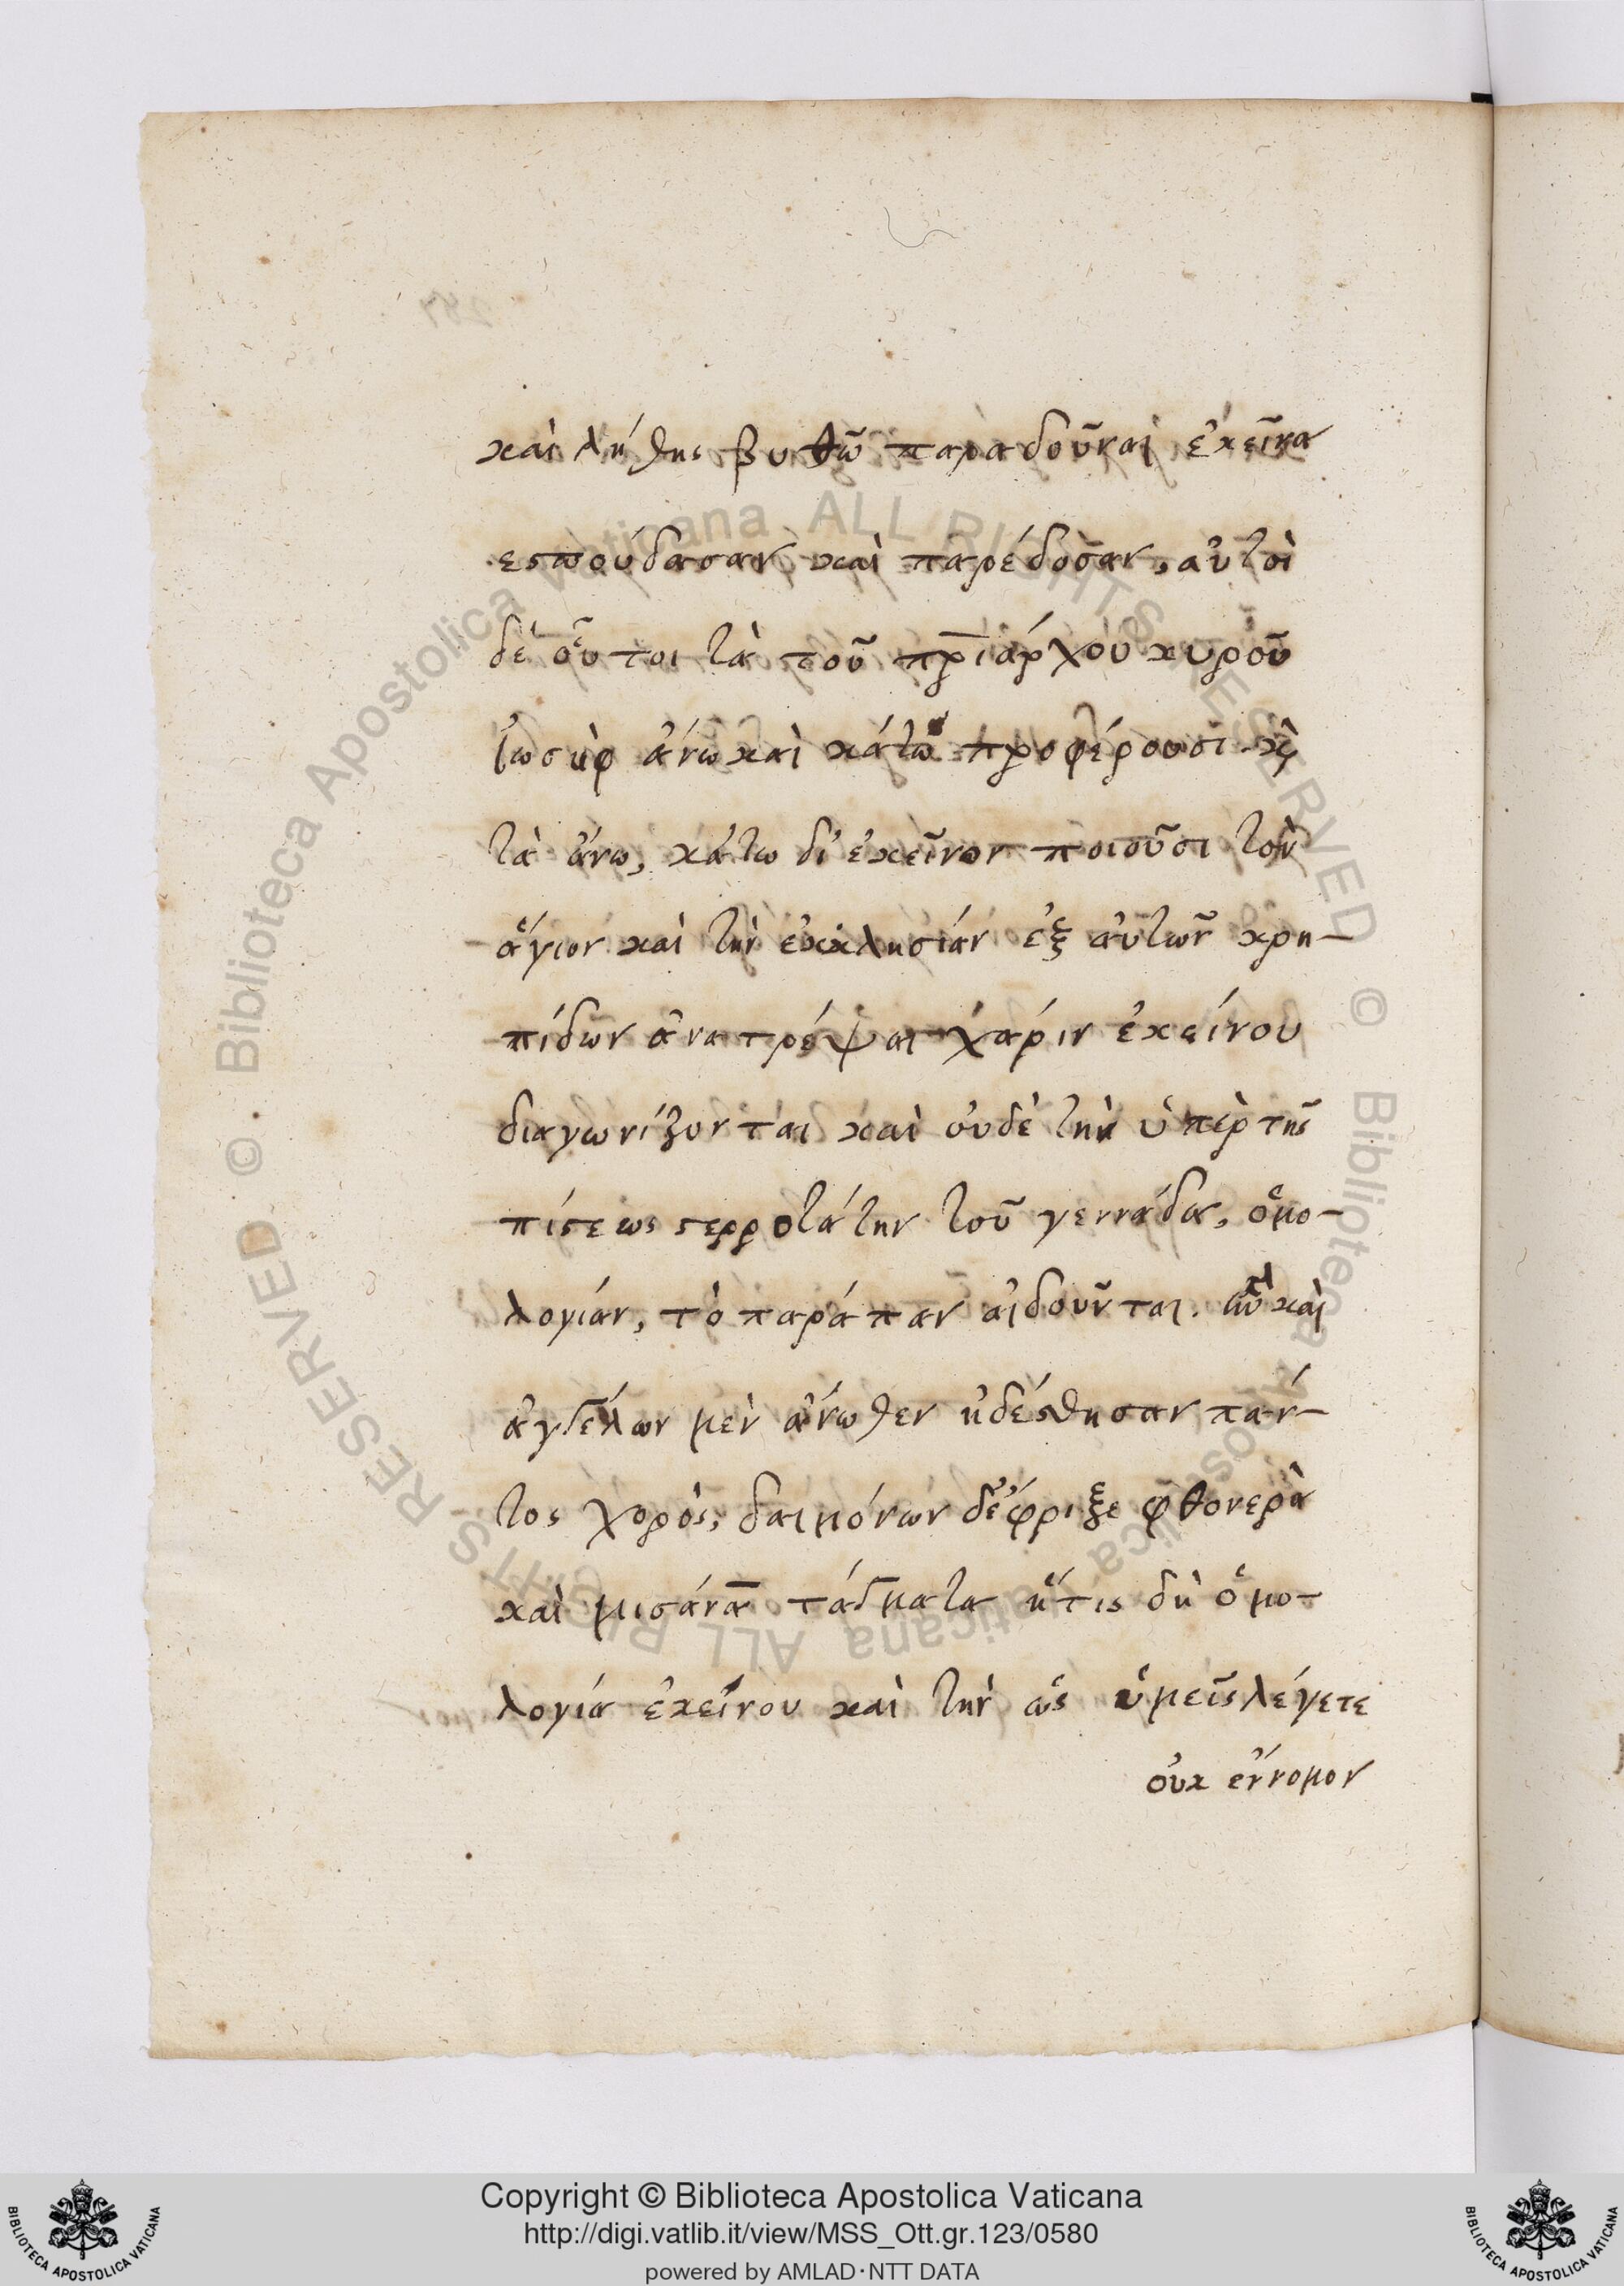 καὶ λήθης βυθῶ παραδοῦναι ἐκεῖνα
εσπούδασαν καὶ παρέδοσαν, αὐτοὶ
δὲ οὗτοι τὰ τοῦ πριάρχου κυροῦ
ἰωσὴφ ἄνω καὶ κάτω προφέρουσι κ
τὰ ἄνω, κάτω δι' ἐκεῖνον ποιοῦσι τὸν
ἅγιον καὶ τὴν ἐκκλησίαν ἐξ αὐτῶν κρη-
πίδων ἀνατρέψαι χάριν ἐκείνου
διαγωνίζονται καὶ οὐδὲ τὴν ὑπὲρ τῆς
πίστεως στερροτάτην τοῦ γεννάδα, ὁμο-
λογίαν, τὸ παράπαν αἰδοῦνται. ἣν καὶ
ἀγγέλων μὲν ἄνωθεν ἠδέσθησαν πάν-
τος χορὸς, δαιμόνων δ' ἔφριξε φθονερὰ
καὶ μισάνα τάγματα ἥτις δὴ ὁμο-
λογία ἐκείνου καὶ τὴν ὡς ὑμεῖς λέγετε
οὐκ ἔννομον
Copyright © Biblioteca Apostolica Vaticana
http://digi.vatlib.it/view/MSS_Ott.gr.123/0580
powered by AMLAD·NTT DATA
BIBLIOTECA APOSTOLICA VATICANA
BIBLIOTECA APOSTOLICA VATICANA
© Biblioteca Apostolica Vaticana ALL RIGHTS RESERVED
© Biblioteca Apostolica Vaticana ALL RIGHTS RESERVED